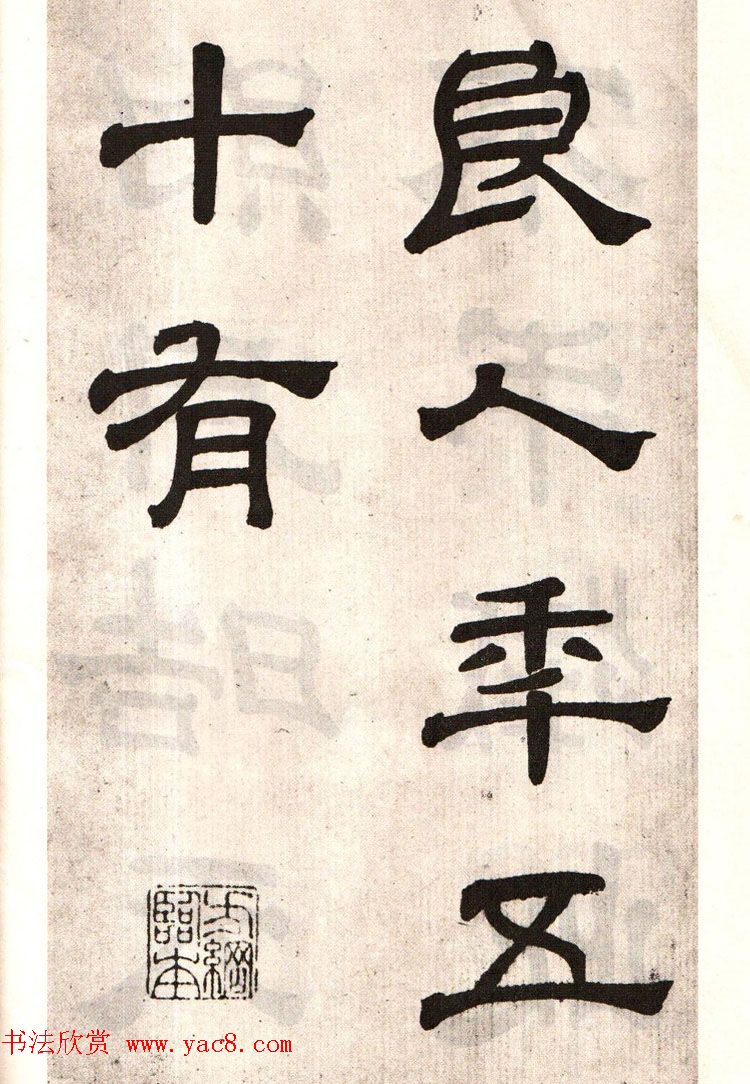 良人年五
十有
方綱臨本
书法欣赏 www.yac8.com